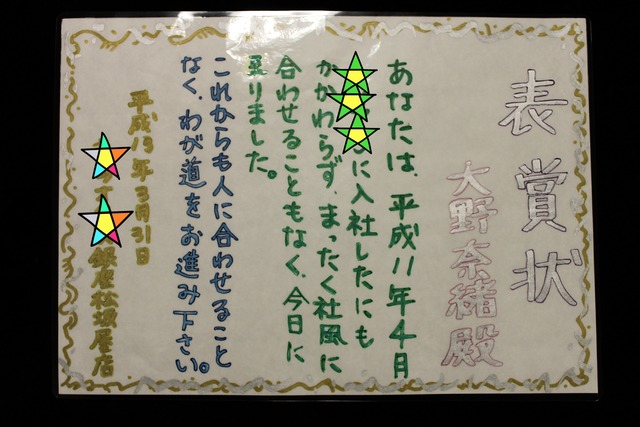 表賞状
大野奈緒殿
あなたは、平成11年4月
に入社したにも
かかわらず、まったく社風に
合わせることもなく、今日に
至りました。
これからも人に合わせること
なく、わが道をお進み下さい。
平成13年3月31日
銀座松坂屋店